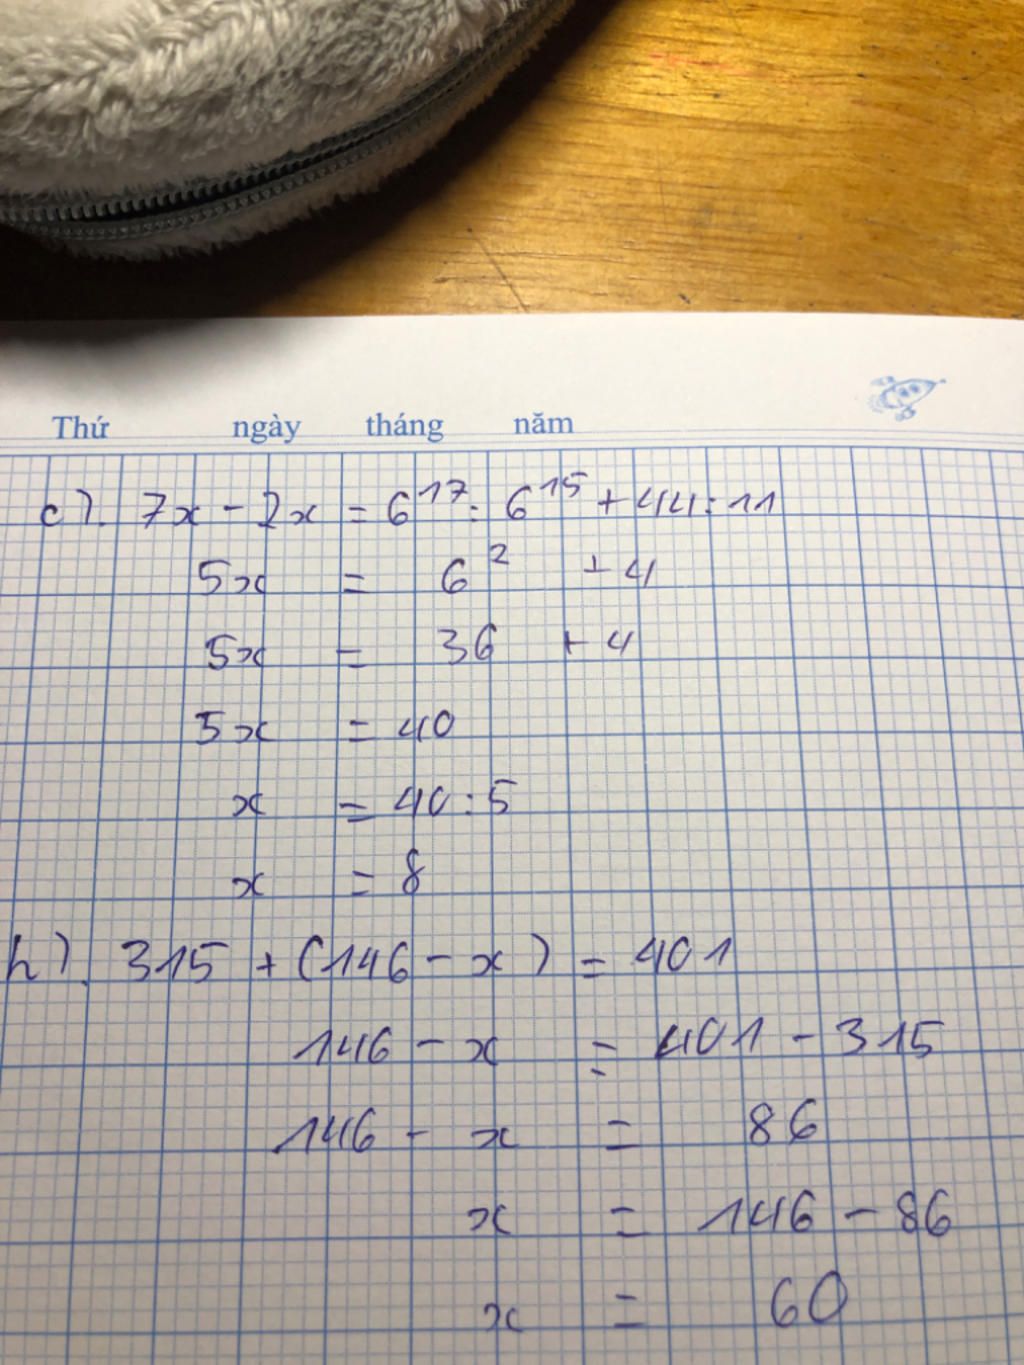 Thứ ngày tháng năm
c). 7x - 2x = 6¹⁷ : 6¹⁵ + 44 : 11
5x = 6² + 4
5x = 36 + 4
5x = 40
x = 40 : 5
x = 8
h). 315 + (146 - x) = 401
146 - x = 401 - 315
146 - x = 86
x = 146 - 86
x = 60